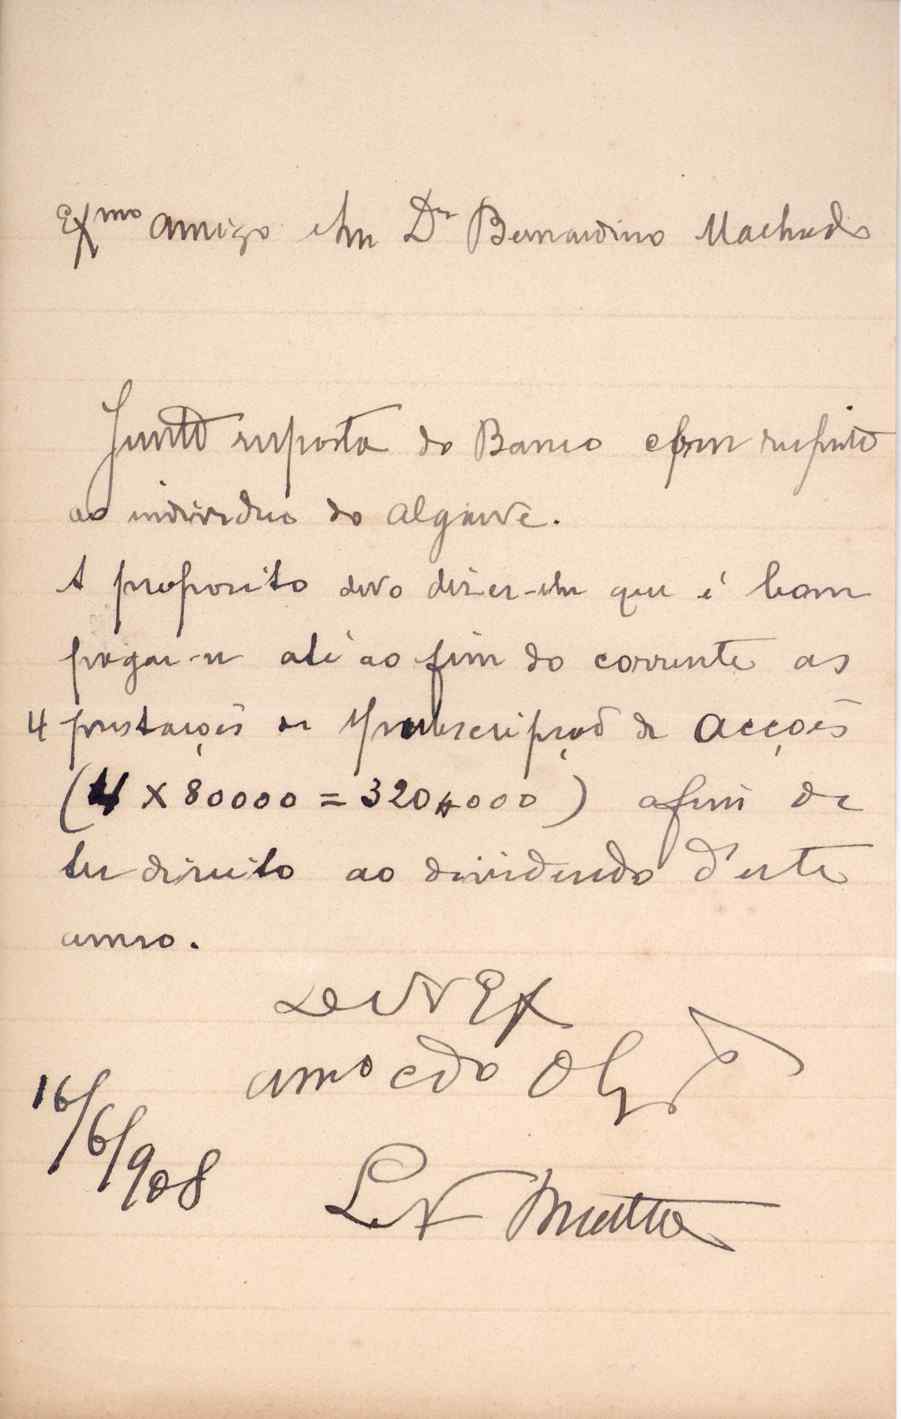 Exmo amigo e Sr Dr Bernardino Machado
Junto resposta do Banco com respeito
ao individuo do Algarve.
A proposito devo dizer-lhe que é bom
pagar-se até ao fim do corrente as
4 prestações de subscripção de acções
(4 x 80000 = 320$000) afim de
ter direito ao dividendo d'este
anno.
De V Ex
amo cdo obgdo
16/6/908
L N Motta